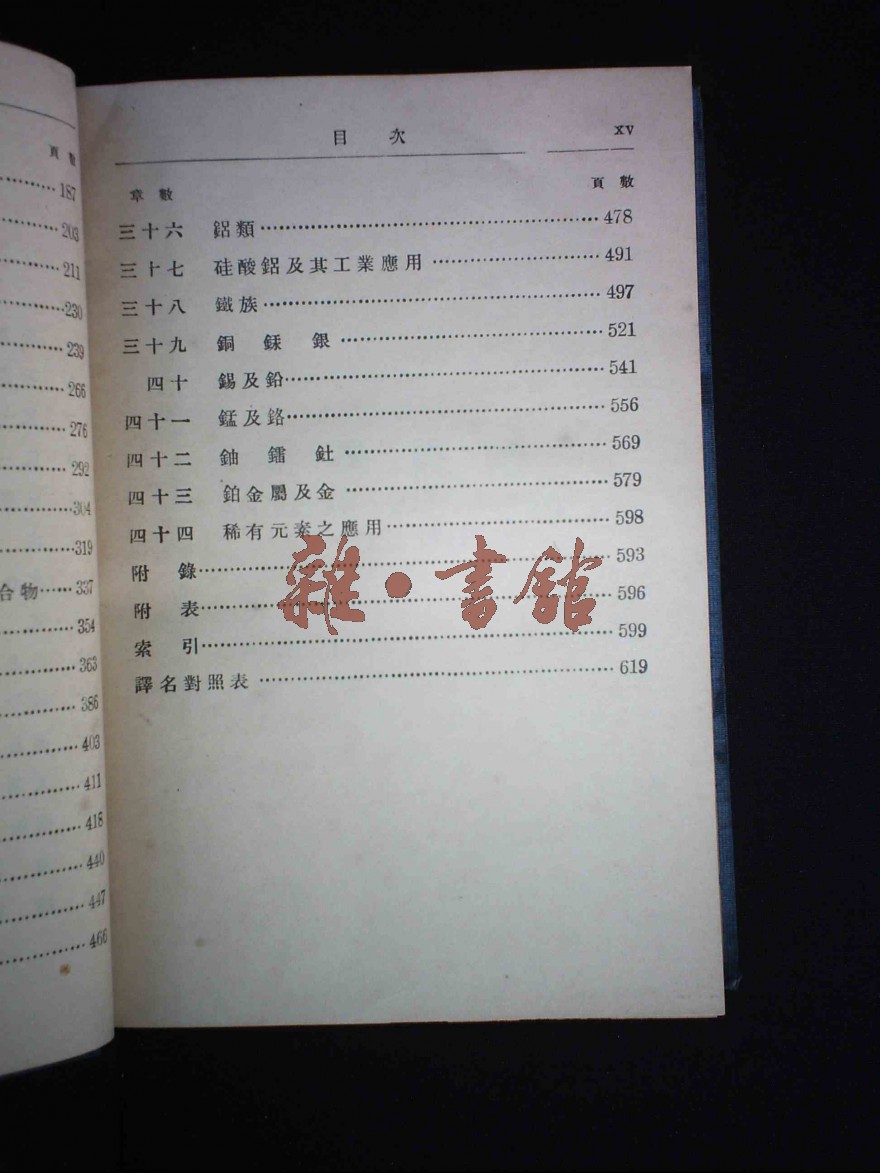 頁 數
187
203
211
230
239
266
276
292
304
319
合物……337
354
363
386
403
411
418
440
447
466
目 次 xv
章 數 頁 數
三十六 鋁類……478
三十七 硅酸鋁及其工業應用……491
三十八 鐵族……497
三十九 銅 銾 銀……521
四十 錫及鉛……541
四十一 錳及鉻……556
四十二 鈾 鐳 釷……569
四十三 鉑金屬及金……579
四十四 稀有元素之應用……598
附 錄……593
附 表……596
索 引……599
譯名對照表……619
雜·書館